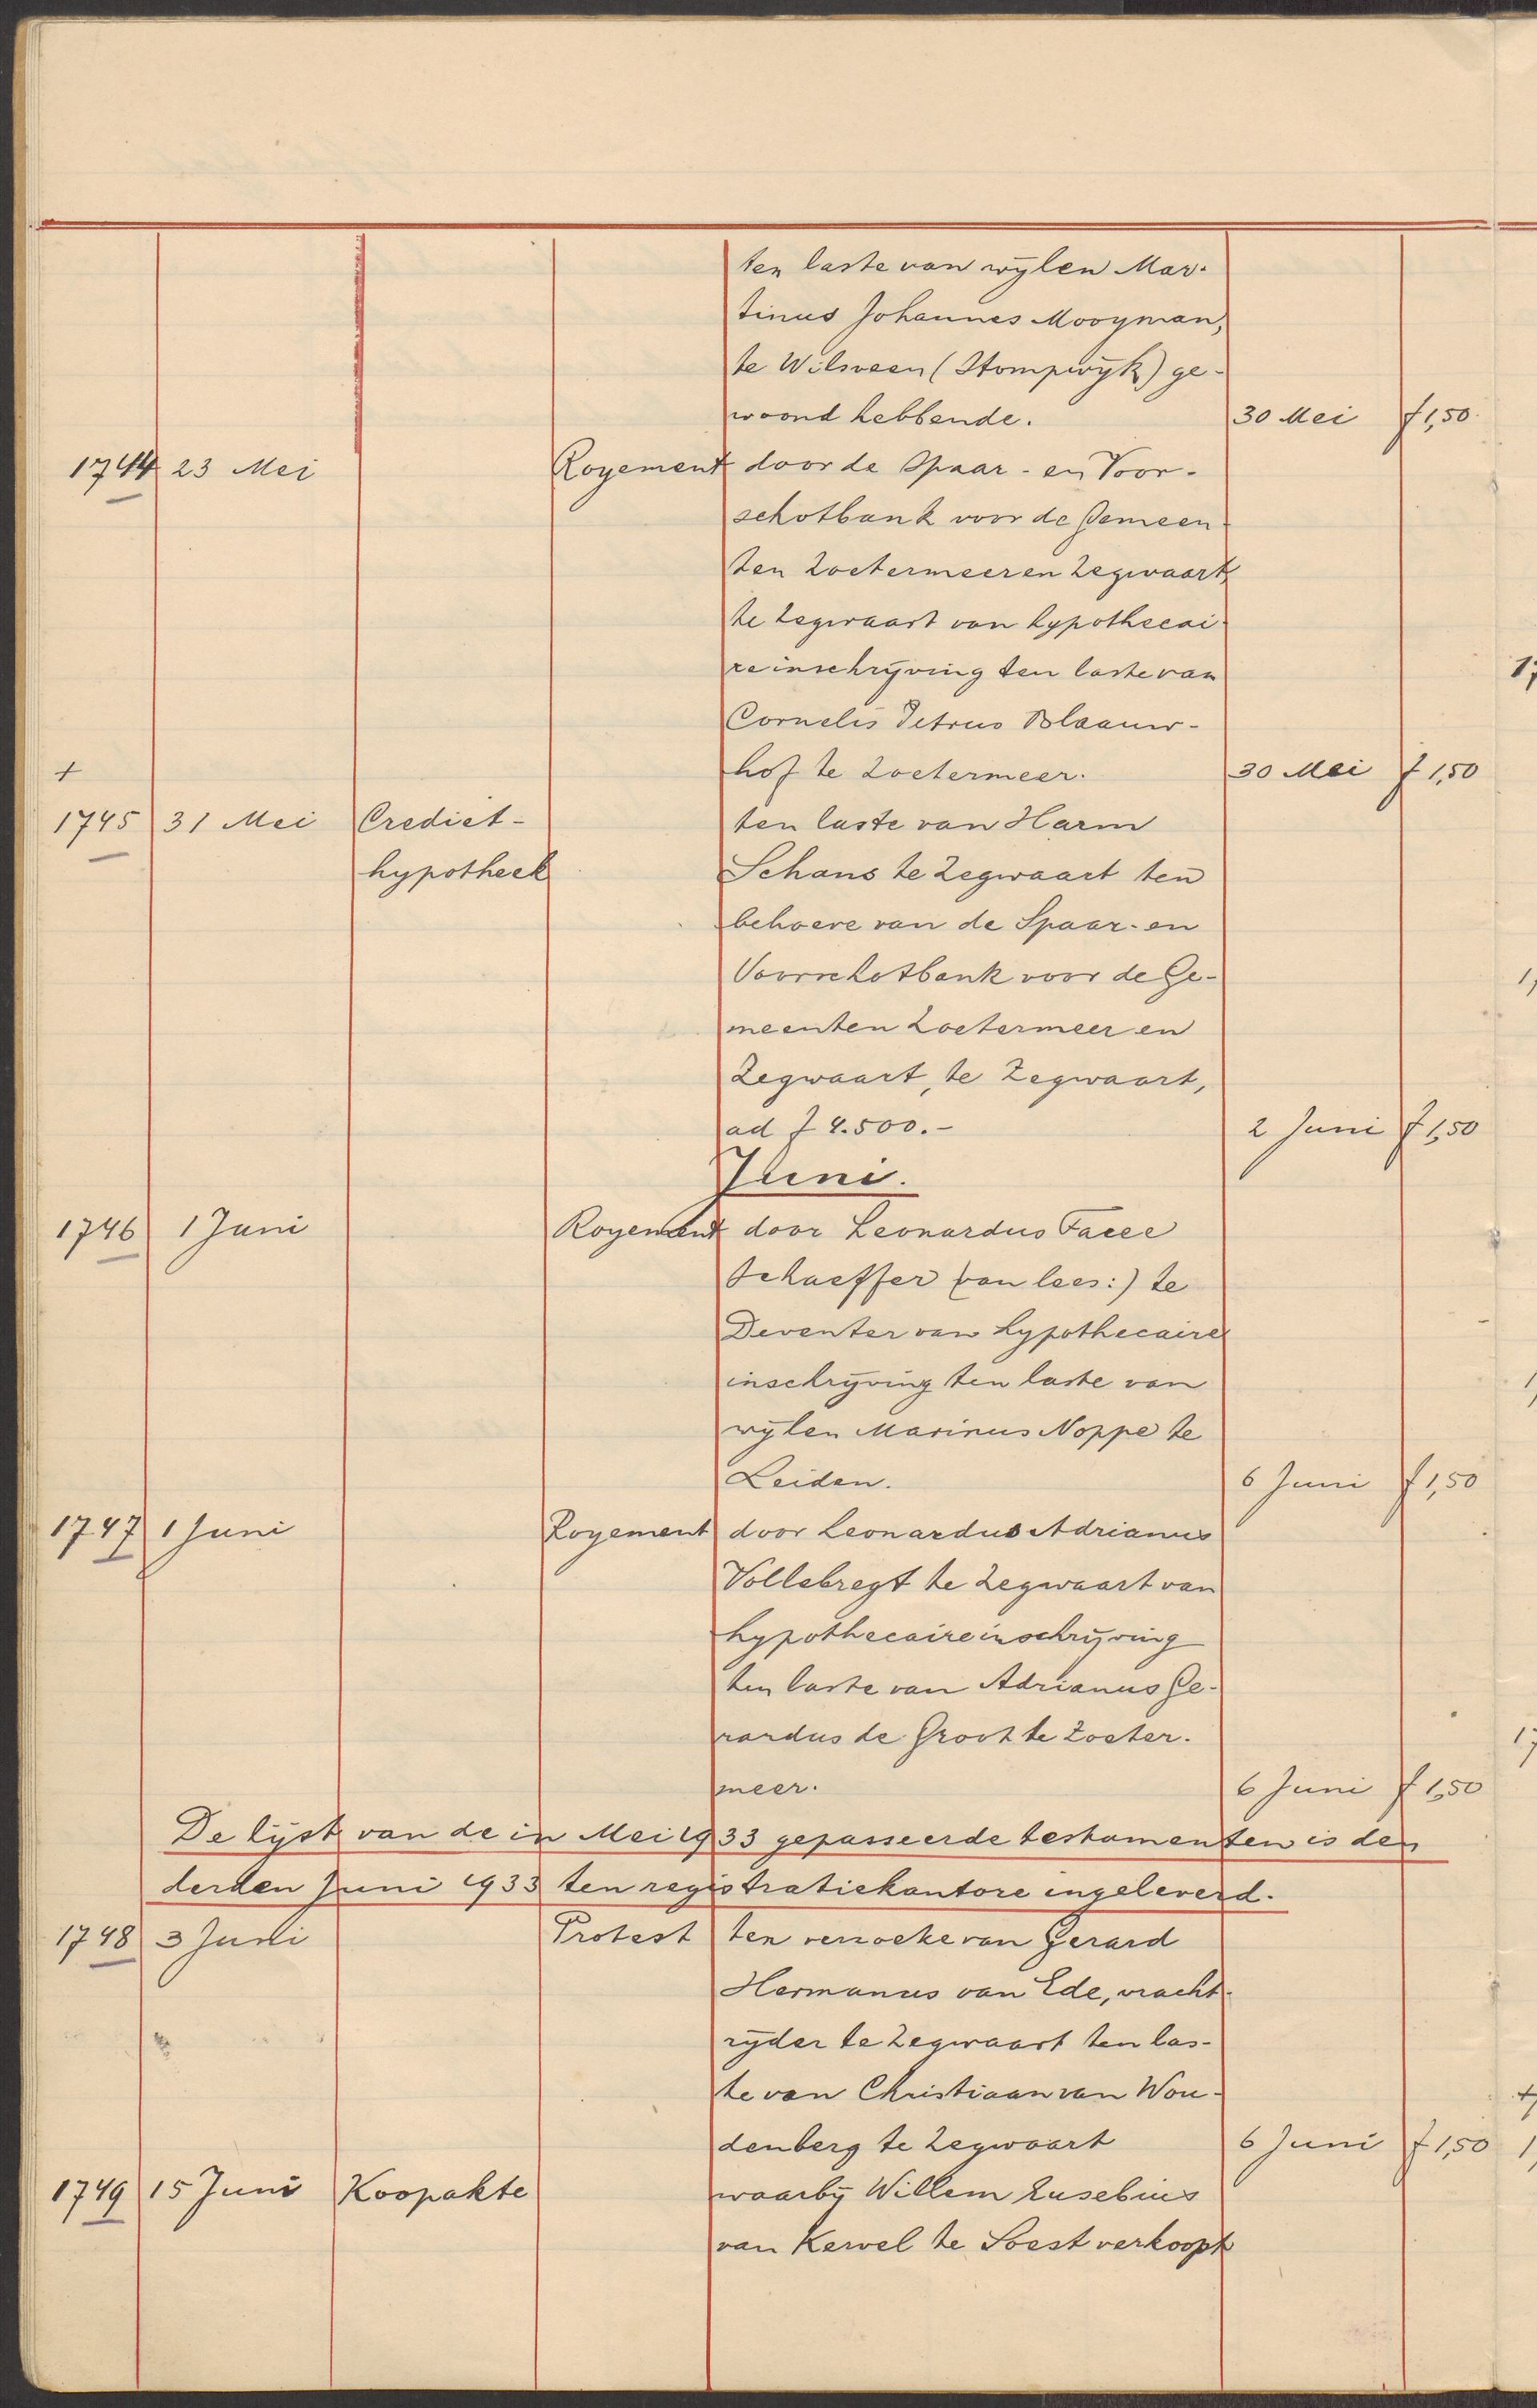 ten laste van wijlen Mar-
tinus Johannes Mooyman,
te Wilsveen (Stompwijk) ge-
woond hebbende. 30 Mei f 1,50
1744 23 Mei Royement door de Spaar- en Voor-
schotbank voor de Gemeen
ten Zoetermeer en Zegwaart
te Zegwaart van hypothecai
re inschrijving ten laste van
Cornelis Petrus Blaauw-
+ hof te Zoetermeer. 30 Mei f 1,50
1745 31 Mei Crediet- ten laste van Harm
hypotheek Schans te Zegwaart ten
behoeve van de Spaar- en
Voorschotbank voor de Ge-
meenten Zoetermeer en
Zegwaart, te Zegwaart,
ad f 4.500.- 2 Juni f 1,50
Juni.
1746 1 Juni Royement door Leonardus
Schaeffer van lees:) te
Deventer van hypothecaire
inschrijving ten laste van
wijlen Marinus Noppe te
Leiden. 6 Juni f 1,50
1747 1 Juni Royement door Leonardus Adrianus
Vollebregt te Zegwaart van
hypothecaire inschrijving
ten laste van Adrianus Ge-
rardus de Groot te Zoeter-
meer. 6 Juni f 1,50
De lijst van de in Mei 1933 gepasseerde testamenten is den
derden Juni 1933 ten registratiekantore ingeleverd.
1748 3 Juni Protest ten verzoeke van Gerard
Hermanus van Ede, vracht-
rijder te Zegwaart ten las-
te van Christiaan van Wou-
denberg te Zegwaart 6 Juni f 1,50
1749 15 Juni Koopakte waarbij Willem Eusebius
van Kervel te Soest verkoopt